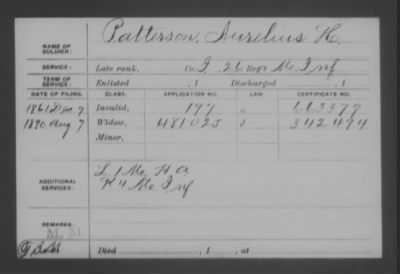 NAME OF SOLDIER: Patterson, Aurelius H.
SERVICE: Late rank, Co. I, 26 Reg't Me. Inf
TERM OF SERVICE: Enlisted , 1 Discharged , 1
DATE OF FILING. CLASS. APPLICATION NO. LAW. CERTIFICATE NO.
Dec 7 Invalid, 177 613377
1890 Aug 7 Widow, 481025 342474
Minor,
ADDITIONAL SERVICES: L 1 Me. H A
K 4 Me. Inf
REMARKS:
Died , 1 , at